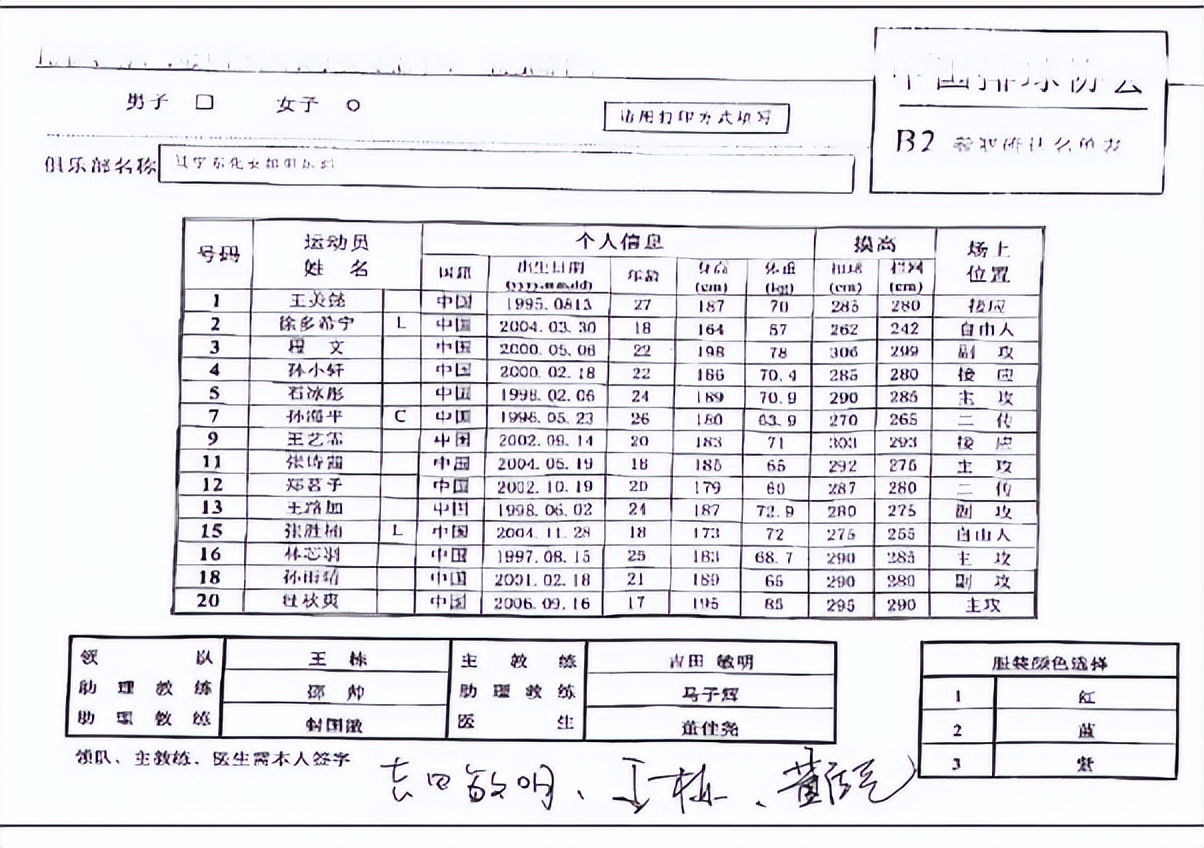 中国排球协会
男子 □ 女子 ○
请用打印方式填写
B2
俱乐部名称
号码 运动员姓名 个人信息 摸高 场上位置
国籍 出生日期(yyyy.mm.dd) 年龄 身高(cm) 体重(kg) 扣球(cm) 拦网(cm)
1 中国 1995.0813 27 187 70 285 280 接应
2 L 中国 2004.03.30 18 164 57 262 242 自由人
3 文 中国 2000.05.06 22 198 78 306 299 副 攻
4 孙小轩 中国 2000.02.18 22 186 70.4 285 280 接 应
5 石冰彤 中国 1998.02.06 24 189 70.9 290 285 主 攻
7 孙海平 C 中国 1996.05.23 26 180 63.9 270 265 二 传
9 王艺霏 中国 2002.09.14 20 183 71 303 293 接 应
11 中国 2004.05.19 18 185 65 292 275 主 攻
12 中国 2002.10.19 20 179 60 287 280 二 传
13 中国 1998.06.02 24 187 72.9 280 275 副 攻
15 张胜楠 L 中国 2004.11.28 18 173 72 275 255 自由人
16 林芯羽 中国 1997.08.15 25 183 68.7 290 285 主 攻
18 孙雨晴 中国 2001.02.18 21 189 65 290 280 副 攻
20 杜秋爽 中国 2006.09.16 17 195 85 295 290 主攻
领 队 王 栋 主 教 练 吉田 敏明
助 理 教 练 邵 帅 助 理 教 练 马子辉
助 理 教 练 医 生 董佳尧
服装颜色选择
1 红
2 蓝
3 紫
领队、主教练、医生需本人签字
吉田敏明、王栋、